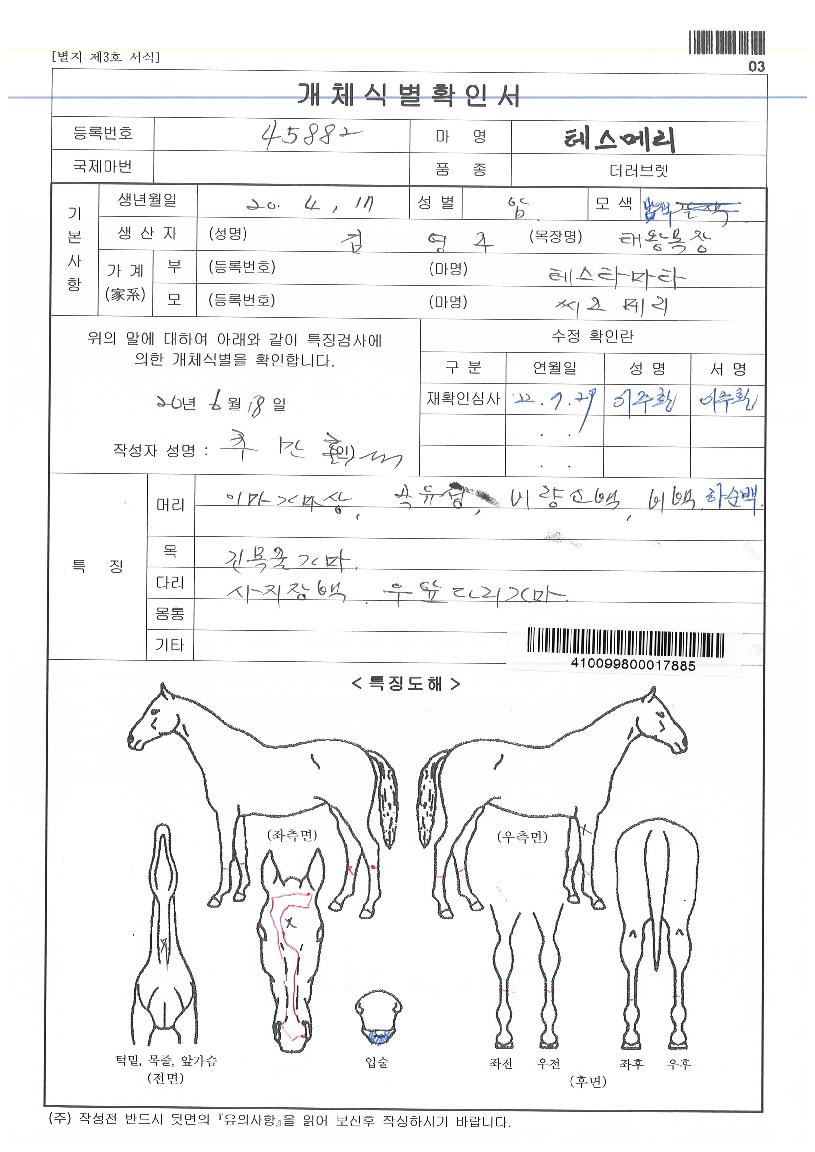 [별지 제3호 서식]
03
개체식별확인서
등록번호 45882 마 명 테스메리
국제마번 품 종 더러브렛
기본사항
생년월일 20. 4. 17 성별 암 모색
생산자 (성명) 김 영 주 (목장명) 태왕목장
가계 (家系) 부 (등록번호) (마명) 테스타마타
모 (등록번호) (마명) 메리
위의 말에 대하여 아래와 같이 특징검사에
의한 개체식별을 확인합니다.
20년 6월 18일
작성자 성명 : 추 (인)
수정 확인란
구 분 연월일 성 명 서 명
재확인심사 22. 7. 27 이주훤 이주훤
. .
. .
특 징
머리 이마가마상, 곡유성, 비량소백, 비백, 하순백.
목 긴목줄가마.
다리 사지장백. 우앞다리가마.
몽통
기타
410099800017885
< 특징도해 >
(좌측면) (우측면)
턱밑, 목줄, 앞가슴
(전면)
입술
좌전 우전 좌후 우후
(후면)
(주) 작성전 반드시 뒷면의 『유의사항』을 읽어 보신후 작성하시기 바랍니다.